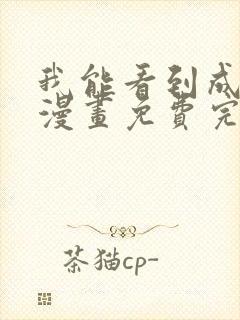 我能看到成
漫畫免費完
茶猫cp-